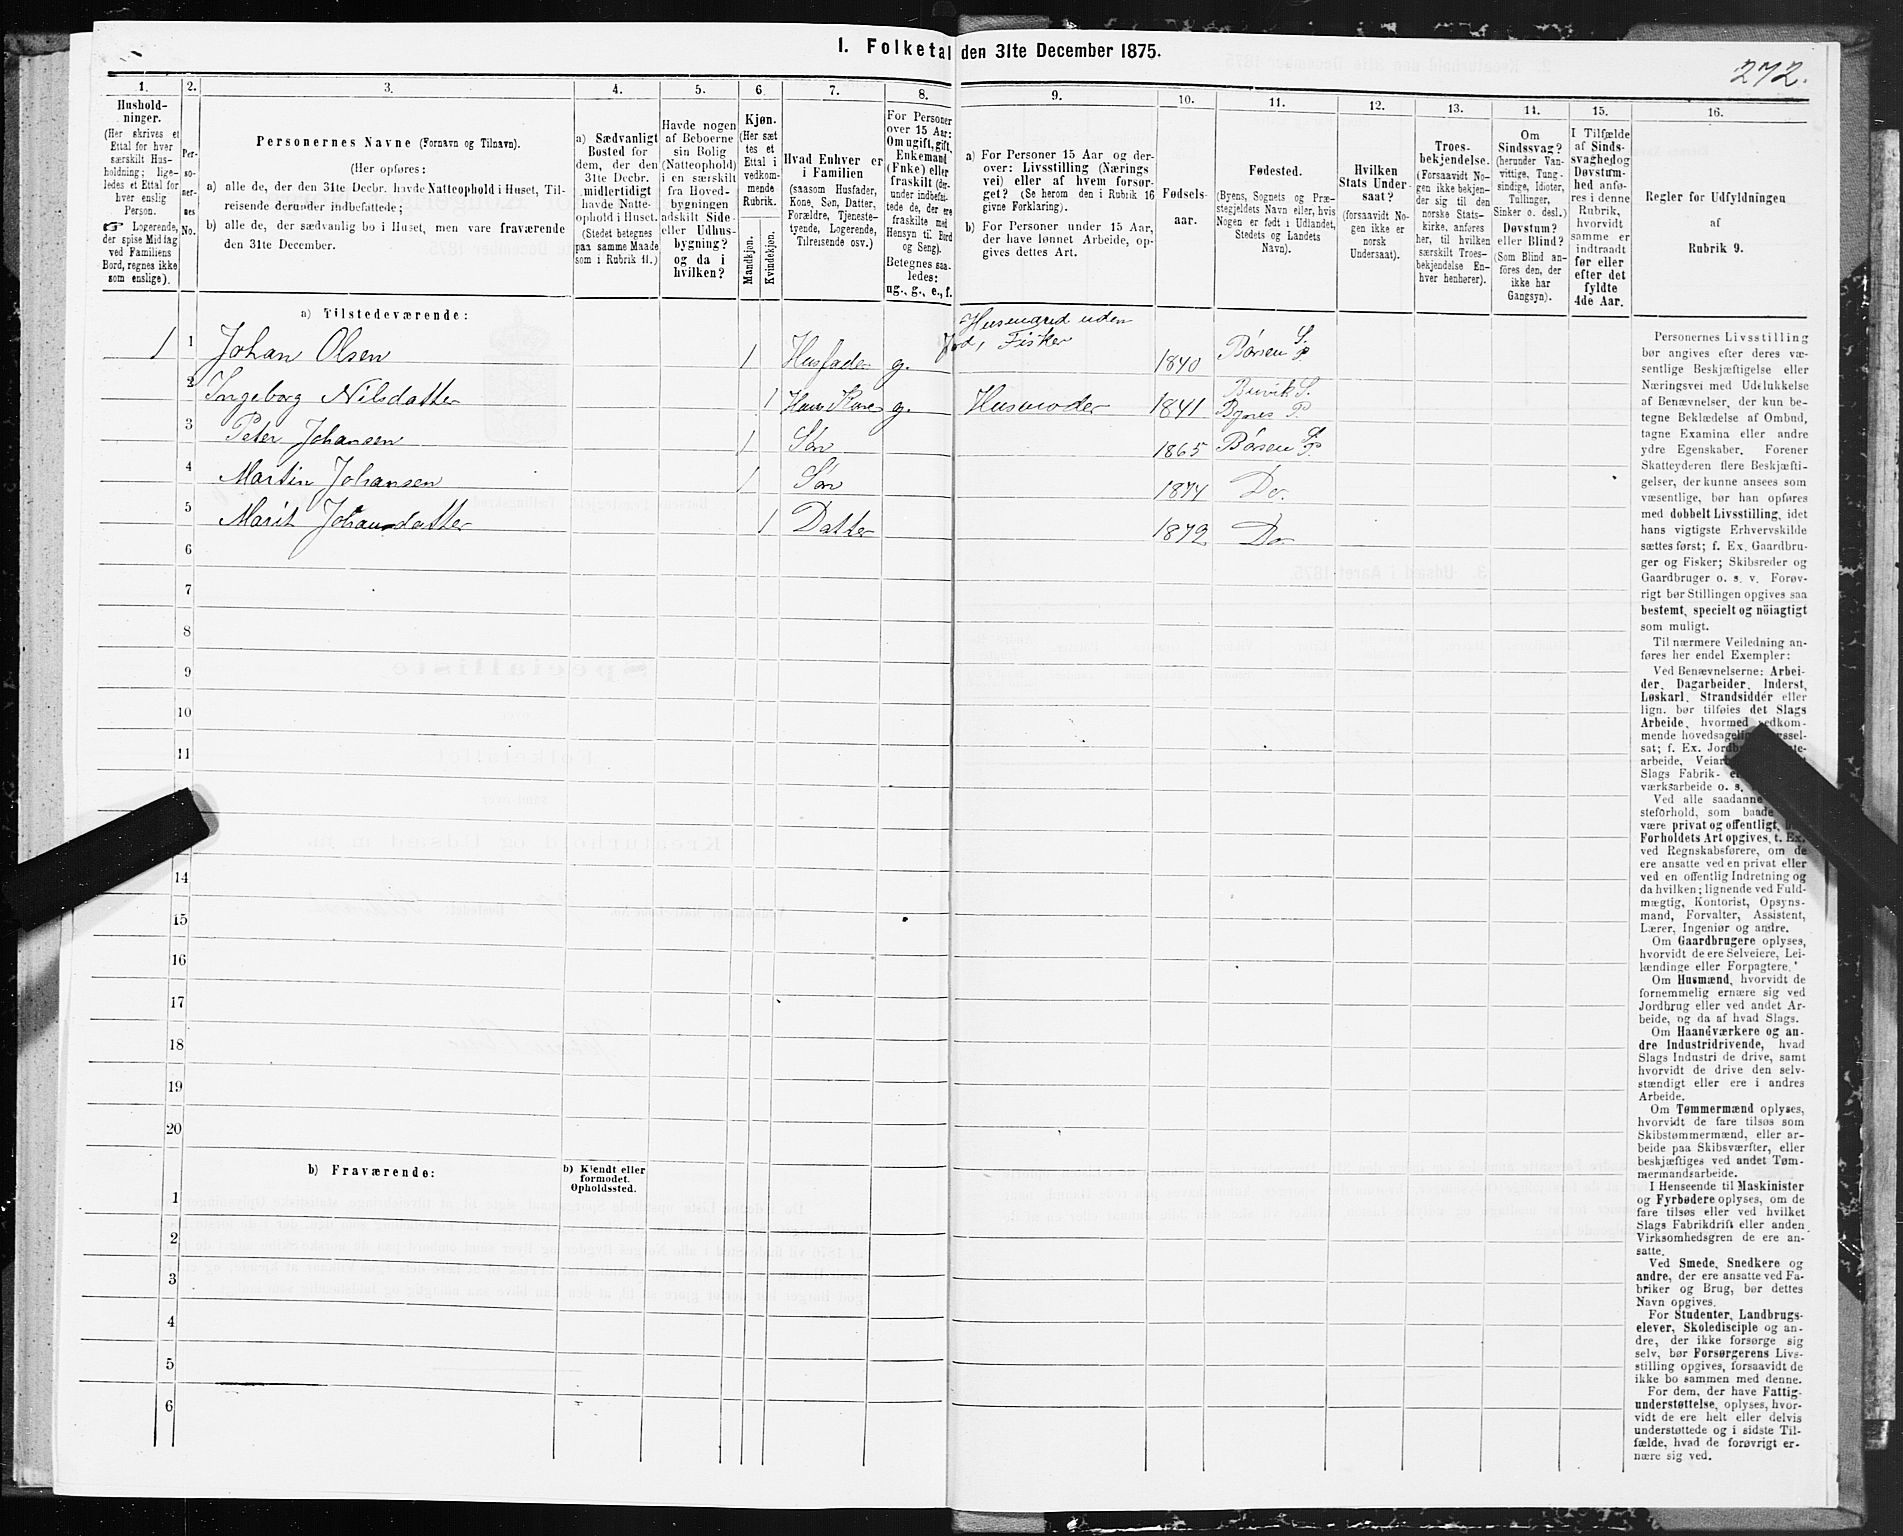 1. Folketal den 31te December 1875.
272.
1.
Hushold-
ninger.
(Her skrives et
Ettal for hver
særskilt Hus-
holdning; lige-
ledes et Ettal for
hver enslig
Person.
☞ Logerende,
der spise Middag
ved Familiens
Bord, regnes ikke
som enslige).
2.
Per-
so-
ner-
nes
No.
3.
Personernes Navne (Fornavn og Tilnavn).
(Her opføres:
a) alle de, der den 31te Decbr. havde Natteophold i Huset, Til-
reisende derunder indbefattede;
b) alle de, der sædvanlig bo i Huset, men vare fraværende
den 31te December.
4.
a) Sædvanligt
Bosted for
dem, der den
31te Decbr.
midlertidigt
havde Natte-
ophold i Huset.
(Stedet betegnes
paa samme Maade
som i Rubrik 11.)
5.
Havde nogen
af Beboerne
sin Bolig
(Natteophold)
i en særskilt
fra Hoved-
bygningen
adskilt Side-
eller Udhus-
bygning?
og da i
hvilken?
6.
Kjøn.
(Her sæt
tes et
Ettal i
vedkom-
mende
Rubrik.
Mandkjøn.
Kvindekjøn.
7.
Hvad Enhver er
i Familien
(saasom Husfader,
Kone, Søn, Datter,
Forældre, Tjeneste-
tyende, Logerende,
Tilreisende osv.)
8.
For Personer
over 15 Aar:
Om ugift, gift,
Enkemand
(Enke) eller
fraskilt (der-
under indbefat-
tede de, der ere
fraskilte med
Hensyn til Bord
og Seng).
Betegnes saa-
ledes:
ug., g., e., f.
9.
a) For Personer 15 Aar og der-
over: Livsstilling (Nærings
vei) eller af hvem forsør-
get? (Se herom den i Rubrik 16
givne Forklaring).
b) For Personer under 15 Aar,
der have lønnet Arbeide, op-
gives dettes Art.
10.
Fødsels-
aar.
11.
Fødested.
(Byens, Sognets og Præ-
stegjeldets Navn eller, hvis
Nogen er født i Udlandet,
Stedets og Landets
Navn).
12.
Hvilken
Stats Under-
saat?
(forsaavidt No-
gen ikke er
norsk
Undersaat).
13.
Troes-
bekjendelse.
(Forsaavidt No-
gen ikke bekjen-
der sig til den
norske Stats-
kirke, anføres
her, til hvilken
særskilt Troes-
bekjendelse En-
hver henhører).
14.
Om
Sindssvag?
(herunder Van-
vittige, Tung-
sindige, Idioter,
Tullinger,
Sinker o. desl.)
Døvstum?
eller Blind?
(Som Blind an-
føres den, der
ikke har
Gangsyn).
15.
I Tilfælde
af Sinds-
svaghed og
Døvstum-
hed anfø-
res i denne
Rubrik,
hvorvidt
samme er
indtraadt
før eller
efter det
fyldte
4de Aar.
16.
Regler for Udfyldningen
af
Rubrik 9.
a) Tilstedeværende:
1 1 Johan Olsen 1 Husfader g. Husmand uden
Jord, Fisker 1840 Børsen S. P.
2 Ingeborg Nilsdatter 1 Hans Kone g. Husmoder 1841 Buvik S.
Bynes P.
3 Peter Johansen 1 Søn 1865 Børsen S. P.
4 Martin Johansen 1 Søn 1874 Do.
5 Marit Johansdatter 1 Datter 1872 Do.
6
7
8
9
10
11
14
15
16
17
18
19
20
b) Fraværende:
b) Kjendt eller
formodet.
Opholdssted.
1
2
3
4
5
6
Personernes Livsstilling
bør angives efter deres væ-
sentlige Beskjæftigelse eller
Næringsvei med Udelukkelse
af Benævnelser, der kun be-
tegne Beklædelse af Ombud,
tagne Examina eller andre
ydre Egenskaber. Forener
Skatteyderen flere Beskjæfti-
gelser, der kunne ansees som
væsentlige, bør han opføres
med dobbelt Livsstilling, idet
hans vigtigste Erhvervskilde
sættes først; f. Ex. Gaardbru-
ger og Fisker; Skibsreder og
Gaardbruger o. s. v. Forøv-
rigt bør Stillingen opgives saa
bestemt, specielt og nöiagtigt
som muligt.
Til nærmere Veiledning an-
føres her endel Exempler:
Ved Benævnelserne: Arbei-
der, Dagarbeider, Inderst,
Løskarl, Strandsidder eller
lign. bør tilføies det Slags
Arbeide, hvormed vedkom-
mende hovedsagelig
sat; f. Ex.
arbeide,
Slags Fabrik-
værksarbeide o. s.
Ved alle saadanne
steforhold, som baade
være privat og offentligt,
Forholdets Art opgives, t. Ex.
ved Regnskabsførere, om de
ere ansatte ved en privat eller
ved en offentlig Indretning og
da hvilken; lignende ved Fuld-
mægtig, Kontorist, Opsyns-
mand, Forvalter, Assistent,
Lærer, Ingeniør og andre.
Om Gaardbrugere oplyses,
hvorvidt de ere Selveiere, Lei-
lændinge eller Forpagtere.
Om Husmænd, hvorvidt de
fornemmelig ernære sig ved
Jordbrug eller ved andet Ar-
beide, og da af hvad Slags.
Om Haandværkere og an-
dre Industridrivende, hvad
Slags Industri de drive, samt
hvorvidt de drive den selv-
stændigt eller ere i andres
Arbeide.
Om Tømmermænd oplyses,
hvorvidt de fare tilsøs som
Skibstømmermænd, eller ar-
beide paa Skibsværfter, eller
beskjæftiges ved andet Tøm-
mermandsarbeide.
I Henseende til Maskinister
og Fyrbødere oplyses, om de
fare tilsøs eller ved hvilket
Slags Fabrikdrift eller anden
Virksomhedsgren de ere an-
satte.
Ved Smede, Snedkere og
andre, der ere ansatte ved Fa-
briker og Brug, bør dettes
Navn opgives.
For Studenter, Landbrugs-
elever, Skoledisciple og an-
dre, der ikke forsørge sig
selv, bør Forsørgerens Livs-
stilling opgives, forsaavidt de
ikke bo sammen med denne.
For dem, der have Fattig-
understøttelse, oplyses, hvor-
vidt de ere helt eller delvis
understøttede og i sidste Til-
fælde, hvad de forøvrigt er-
nære sig ved.